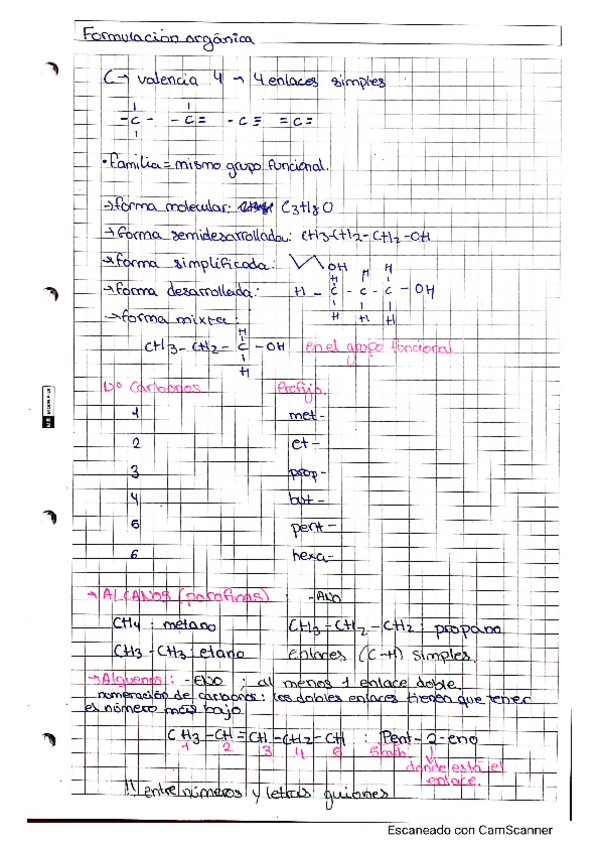 Formulación orgánica
C → valencia 4 → 4 enlaces simples
-C- -C= -C≡ =C=
• Familia = mismo grupo funcional.
→ forma molecular: C3H8O
→ forma semidesarrollada: CH3-CH2-CH2-OH
→ forma simplificada: OH
→ forma desarrollada: H - C - C - C - OH
H H H
H H H
→ forma mixta:
H
CH3-CH2-C-OH en el grupo funcional
H
Nº Carbonos Prefijo
1 met-
2 et-
3 prop-
4 but-
5 pent-
6 hexa-
→ ALCANOS (parafinas) : -ANO
CH4 : metano CH3-CH2-CH2 : propano
CH3-CH3 : etano enlaces (C-H) simples.
→ Alquenos : -ENO : al menos 1 enlace doble.
numeración de carbonos: los dobles enlaces tienen que tener
el número más bajo
CH3-CH=CH-CH2-CH : Pent-2-eno
1 2 3 4 5
donde está el
enlace.
!! entre números y letras guiones
Escaneado con CamScanner